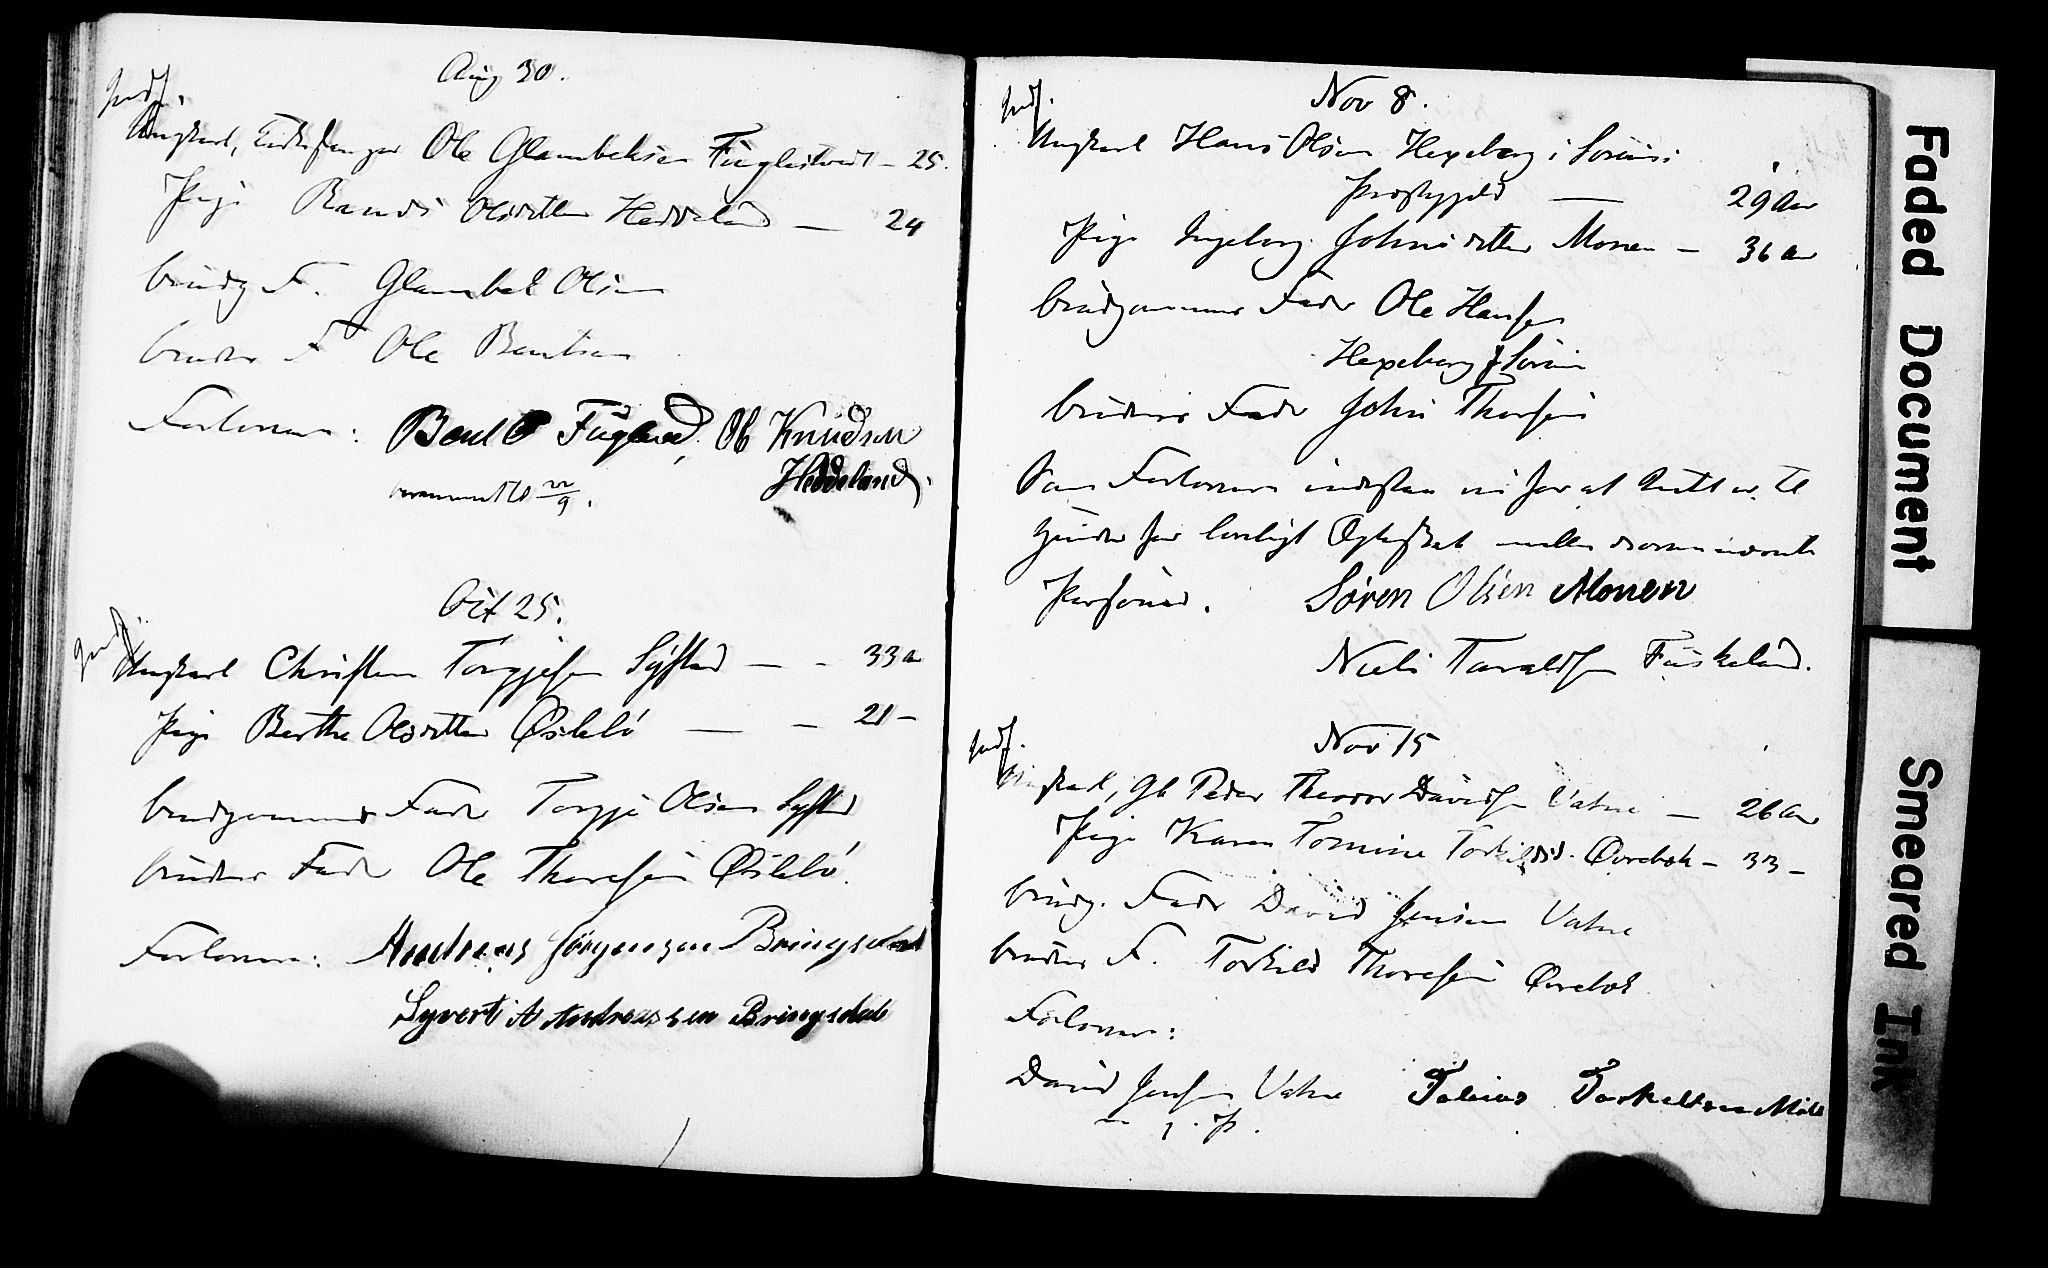 Aug 30.
Indf.
Ungkarl, Ole Glambeksen Fuglestvedt – 25.
Pige Randi Olsdatter Heddeland — 24
brudg F. Glambek Olsen
brudens F Ole Bentsen
Forlovere: Bent O Fugleved, Ole Knudsen
Heddeland.
9.
Oct 25.
Indf.
Ungkarl Christen Torgjesen Syftad — - 33 a
Pige Berthe Olsdatter Øslebö — – 21 –
brudgommens Fader Torgje Olsen Syftad
brudens Fader Ole Thoresen Øslebö.
Forlovere: Andreas Jörgensen Bringsdal
Syvert A Andreassen Bringsdal
Nov 8.
Indf.
Ungkarl Hans Olsen Hexeberg i Soruns
Præstegjeld — 29 Aar
Pige Ingeborg Johnsdatter Monen – 36 aar
brudgommens Fader Ole Hansen
Hexeberg i Sorun
brudens Fader John Thorsen
Som Forlovere indestaa vi for at Intet er til
Hinder for lovligt Ægteskab mellem ovennævnte
Personer. Søren Olsen Monen
Niels Taraldsen Fuskeland.
Nov 15
Indf.
Ungkarl, Gb Peder Theodor Davidsen Vatne — 26 Aar
Pige Karen Tomine Torkildsd. Øvrebök – 33 –
brudg. Fader David Jensen Vatne
brudens F. Torkild Thoresen Øvrebök
Forlovere:
David Jensen Vatne Tobias Torkeltsen
m. p. P.
Faded Document
Smeared Ink